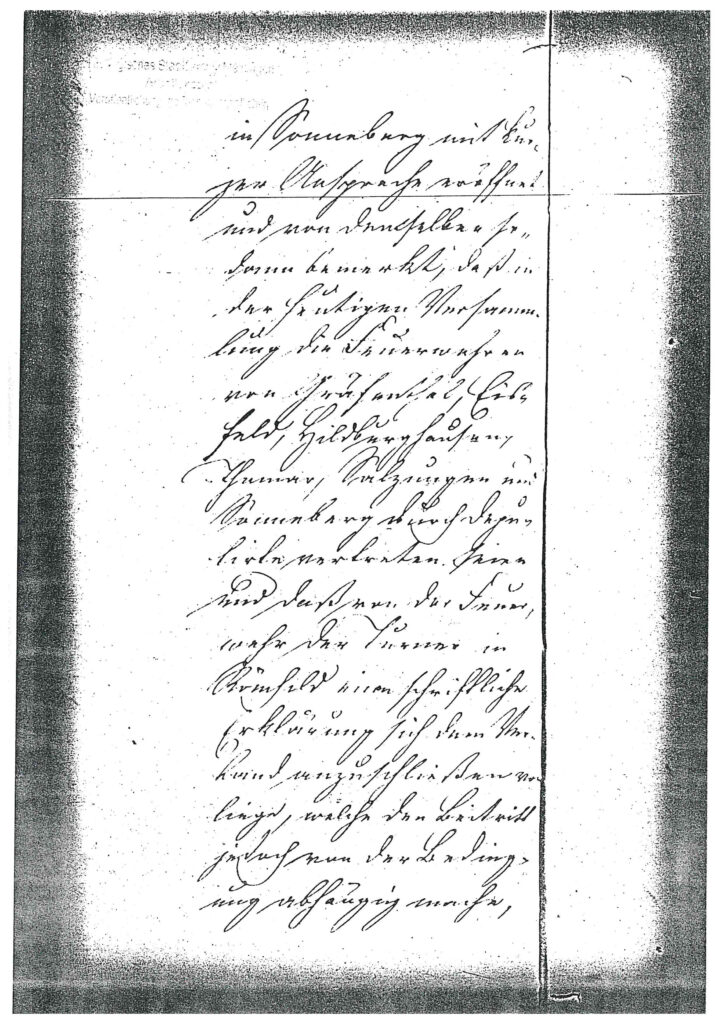 in Sonneberg mit kur-
zer Ansprache eröffnet
und von demselben so-
dann bemerkt, daß in
der heutigen Versamm-
lung die Feuerwehren
von Gräfenthal, Eis-
feld, Hildburghausen,
Themar, Salzungen und
Sonneberg durch Depu-
tirte vertreten seien
und daß von der Feuer-
wehr der Turner in
Römhild eine schriftliche
Erklärung sich dem Ver-
band anzuschließen vor
liege, welche den Beitritt
jedoch von der Beding-
ung abhängig mache,